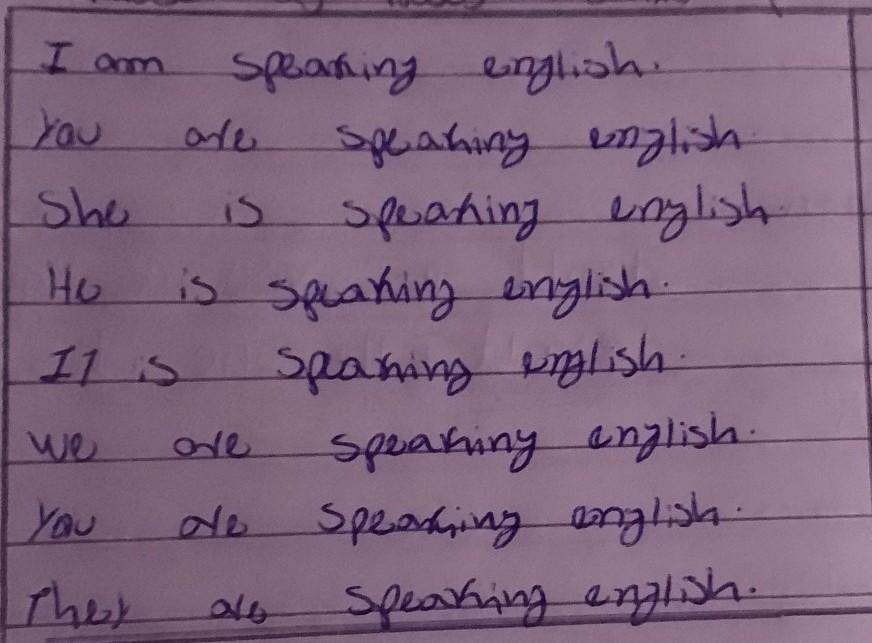 I am speaking english.
You are speaking english
She is speaking english.
He is speaking english.
It is speaking english.
We are speaking english.
You are speaking english.
They are speaking english.